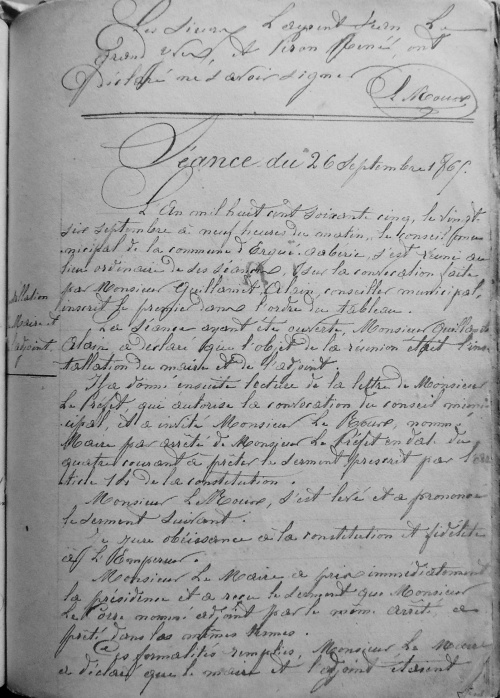 Les sieurs Laurent Jean Le
Grand Yves, et Piron René, ont
déclaré ne savoir signer
Le Roux
Séance du 26 Septembre 1865.
L'An mil huit cent soixante cinq, le vingt
six septembre à neuf heures du matin, le conseil mu
nicipal de la commune d'Ergué-Gabéric, s'est réuni au
lieu ordinaire de ses séances, sur la convocation faite
par Monsieur Guillamet Alain, conseiller municipal,
inscrit le premier dans l'ordre du tableau.
tallation
Maire et
adjoint
La Séance ayant été ouverte, Monsieur Guillamet
Alain a déclaré que l'objet de la réunion était l'ins
tallation du maire et de l'adjoint.
Il a donné ensuite lecture de la lettre de Monsieur
Le Préfet, qui autorise la convocation du conseil muni
cipal, et a invité Monsieur Le Roux, nommé
Maire par arrêté de Monsieur Le Préfet en date du
quatre courant à prêter le serment prescrit par l'ar
ticle 14 de la constitution.
Monsieur Le Roux, s'est levé et a prononcé
le serment suivant.
Je jure obéissance à la constitution et fidélité
à L'Empereur.
Monsieur Le Maire a pris immédiatement
la présidence et a reçu le serment que Monsieur
Le Corre nommé adjoint par le même arrêté a
prêté dans les mêmes termes.
Ces formalités remplies, Monsieur Le Maire
a déclaré que le maire et l'adjoint étaient